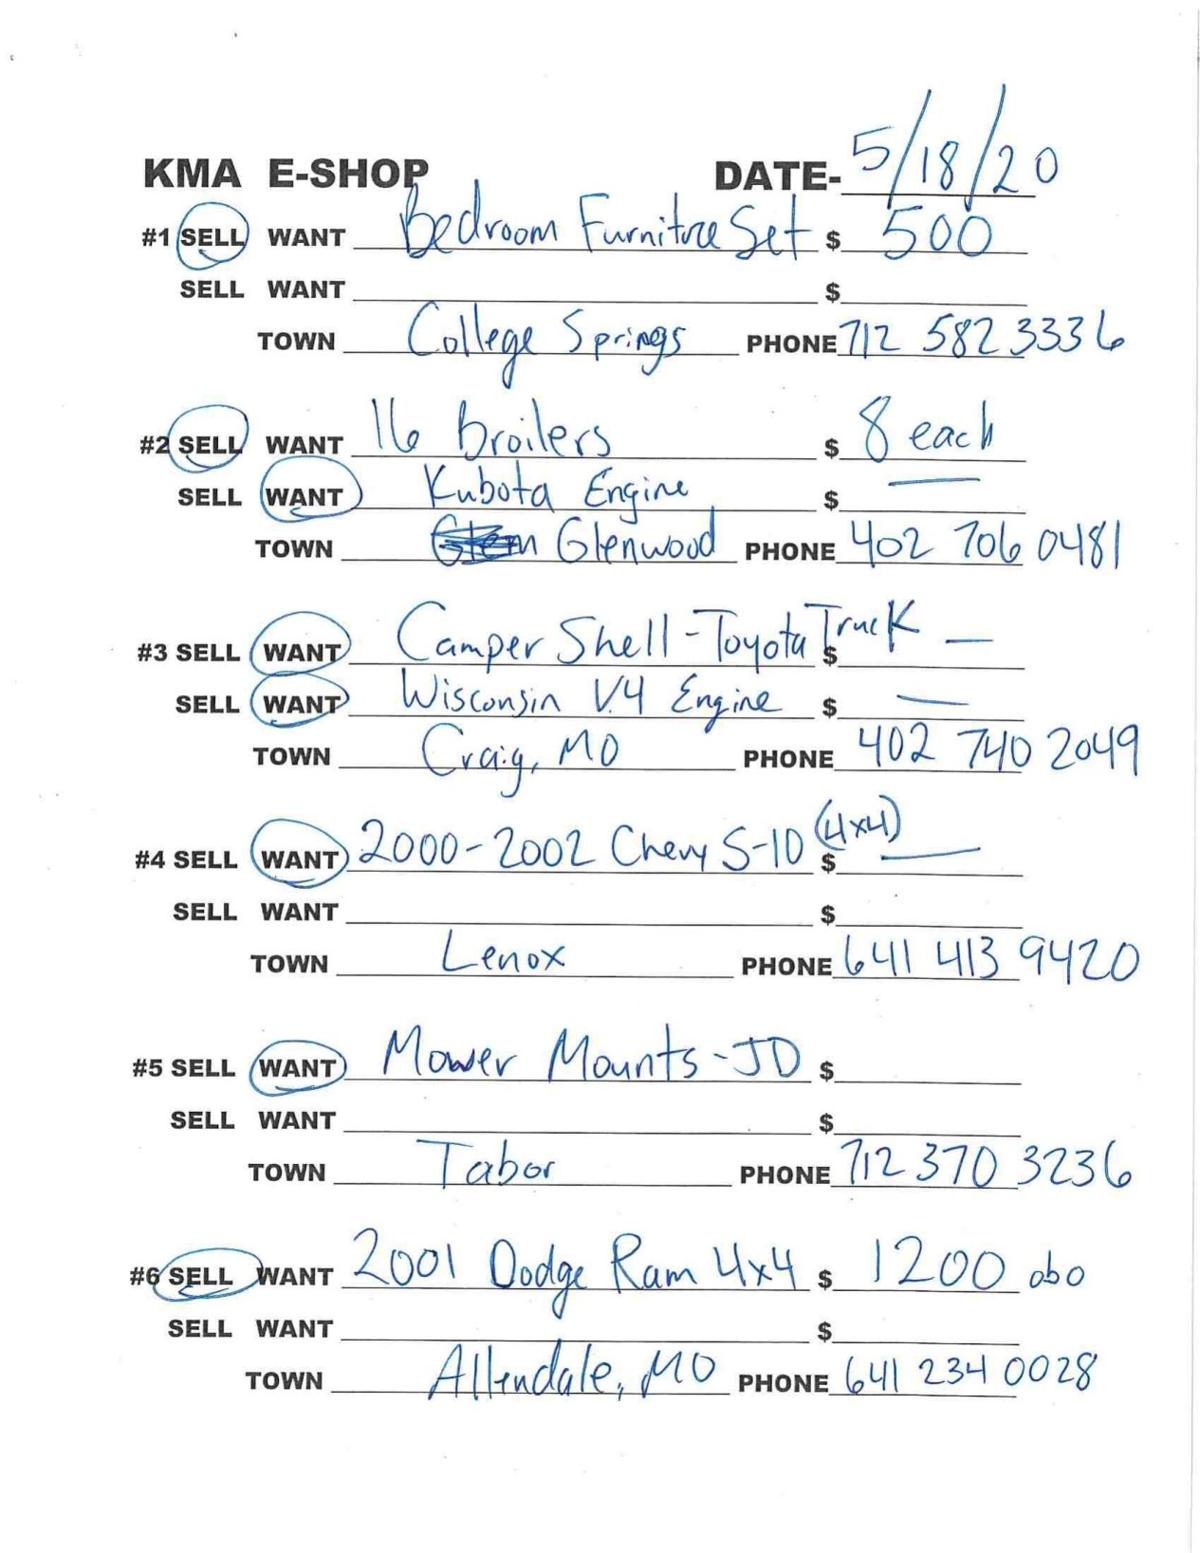 KMA E-SHOP DATE- 5/18/20
#1 SELL WANT Bedroom Furniture Set $ 500
SELL WANT $
TOWN College Springs PHONE 712 582 3336
#2 SELL WANT 16 Broilers $ 8 each
SELL WANT Kubota Engine $ —
TOWN Glenwood PHONE 402 706 0481
#3 SELL WANT Camper Shell - Toyota Truck $ —
SELL WANT Wisconsin V.4 Engine $ —
TOWN Craig, MO PHONE 402 740 2049
#4 SELL WANT 2000-2002 Chevy S-10 (4x4) $ —
SELL WANT $
TOWN Lenox PHONE 641 413 9420
#5 SELL WANT Mower Mounts - JD $
SELL WANT $
TOWN Tabor PHONE 712 370 3236
#6 SELL WANT 2001 Dodge Ram 4x4 $ 1200 obo
SELL WANT $
TOWN Allendale, MO PHONE 641 234 0028